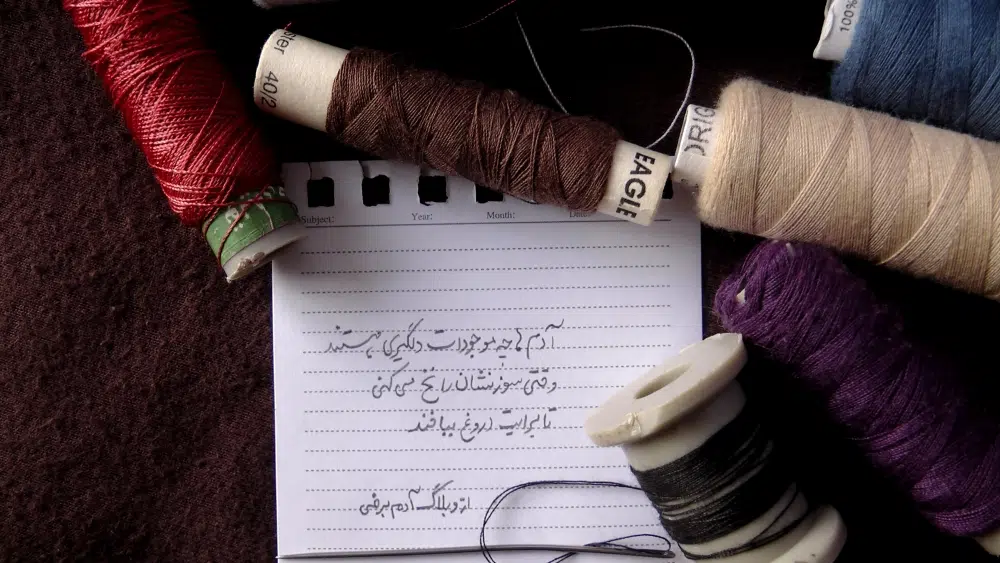 100%
ster
40/2
EAGLE
ORIG
Subject: Year: Month: Date:
آدم ها چه موجودات دلگیری هستند
وقتی سوزنشان را نخ می کنی
تا برایت دروغ ببافند
از وبلاگ آدم برفی